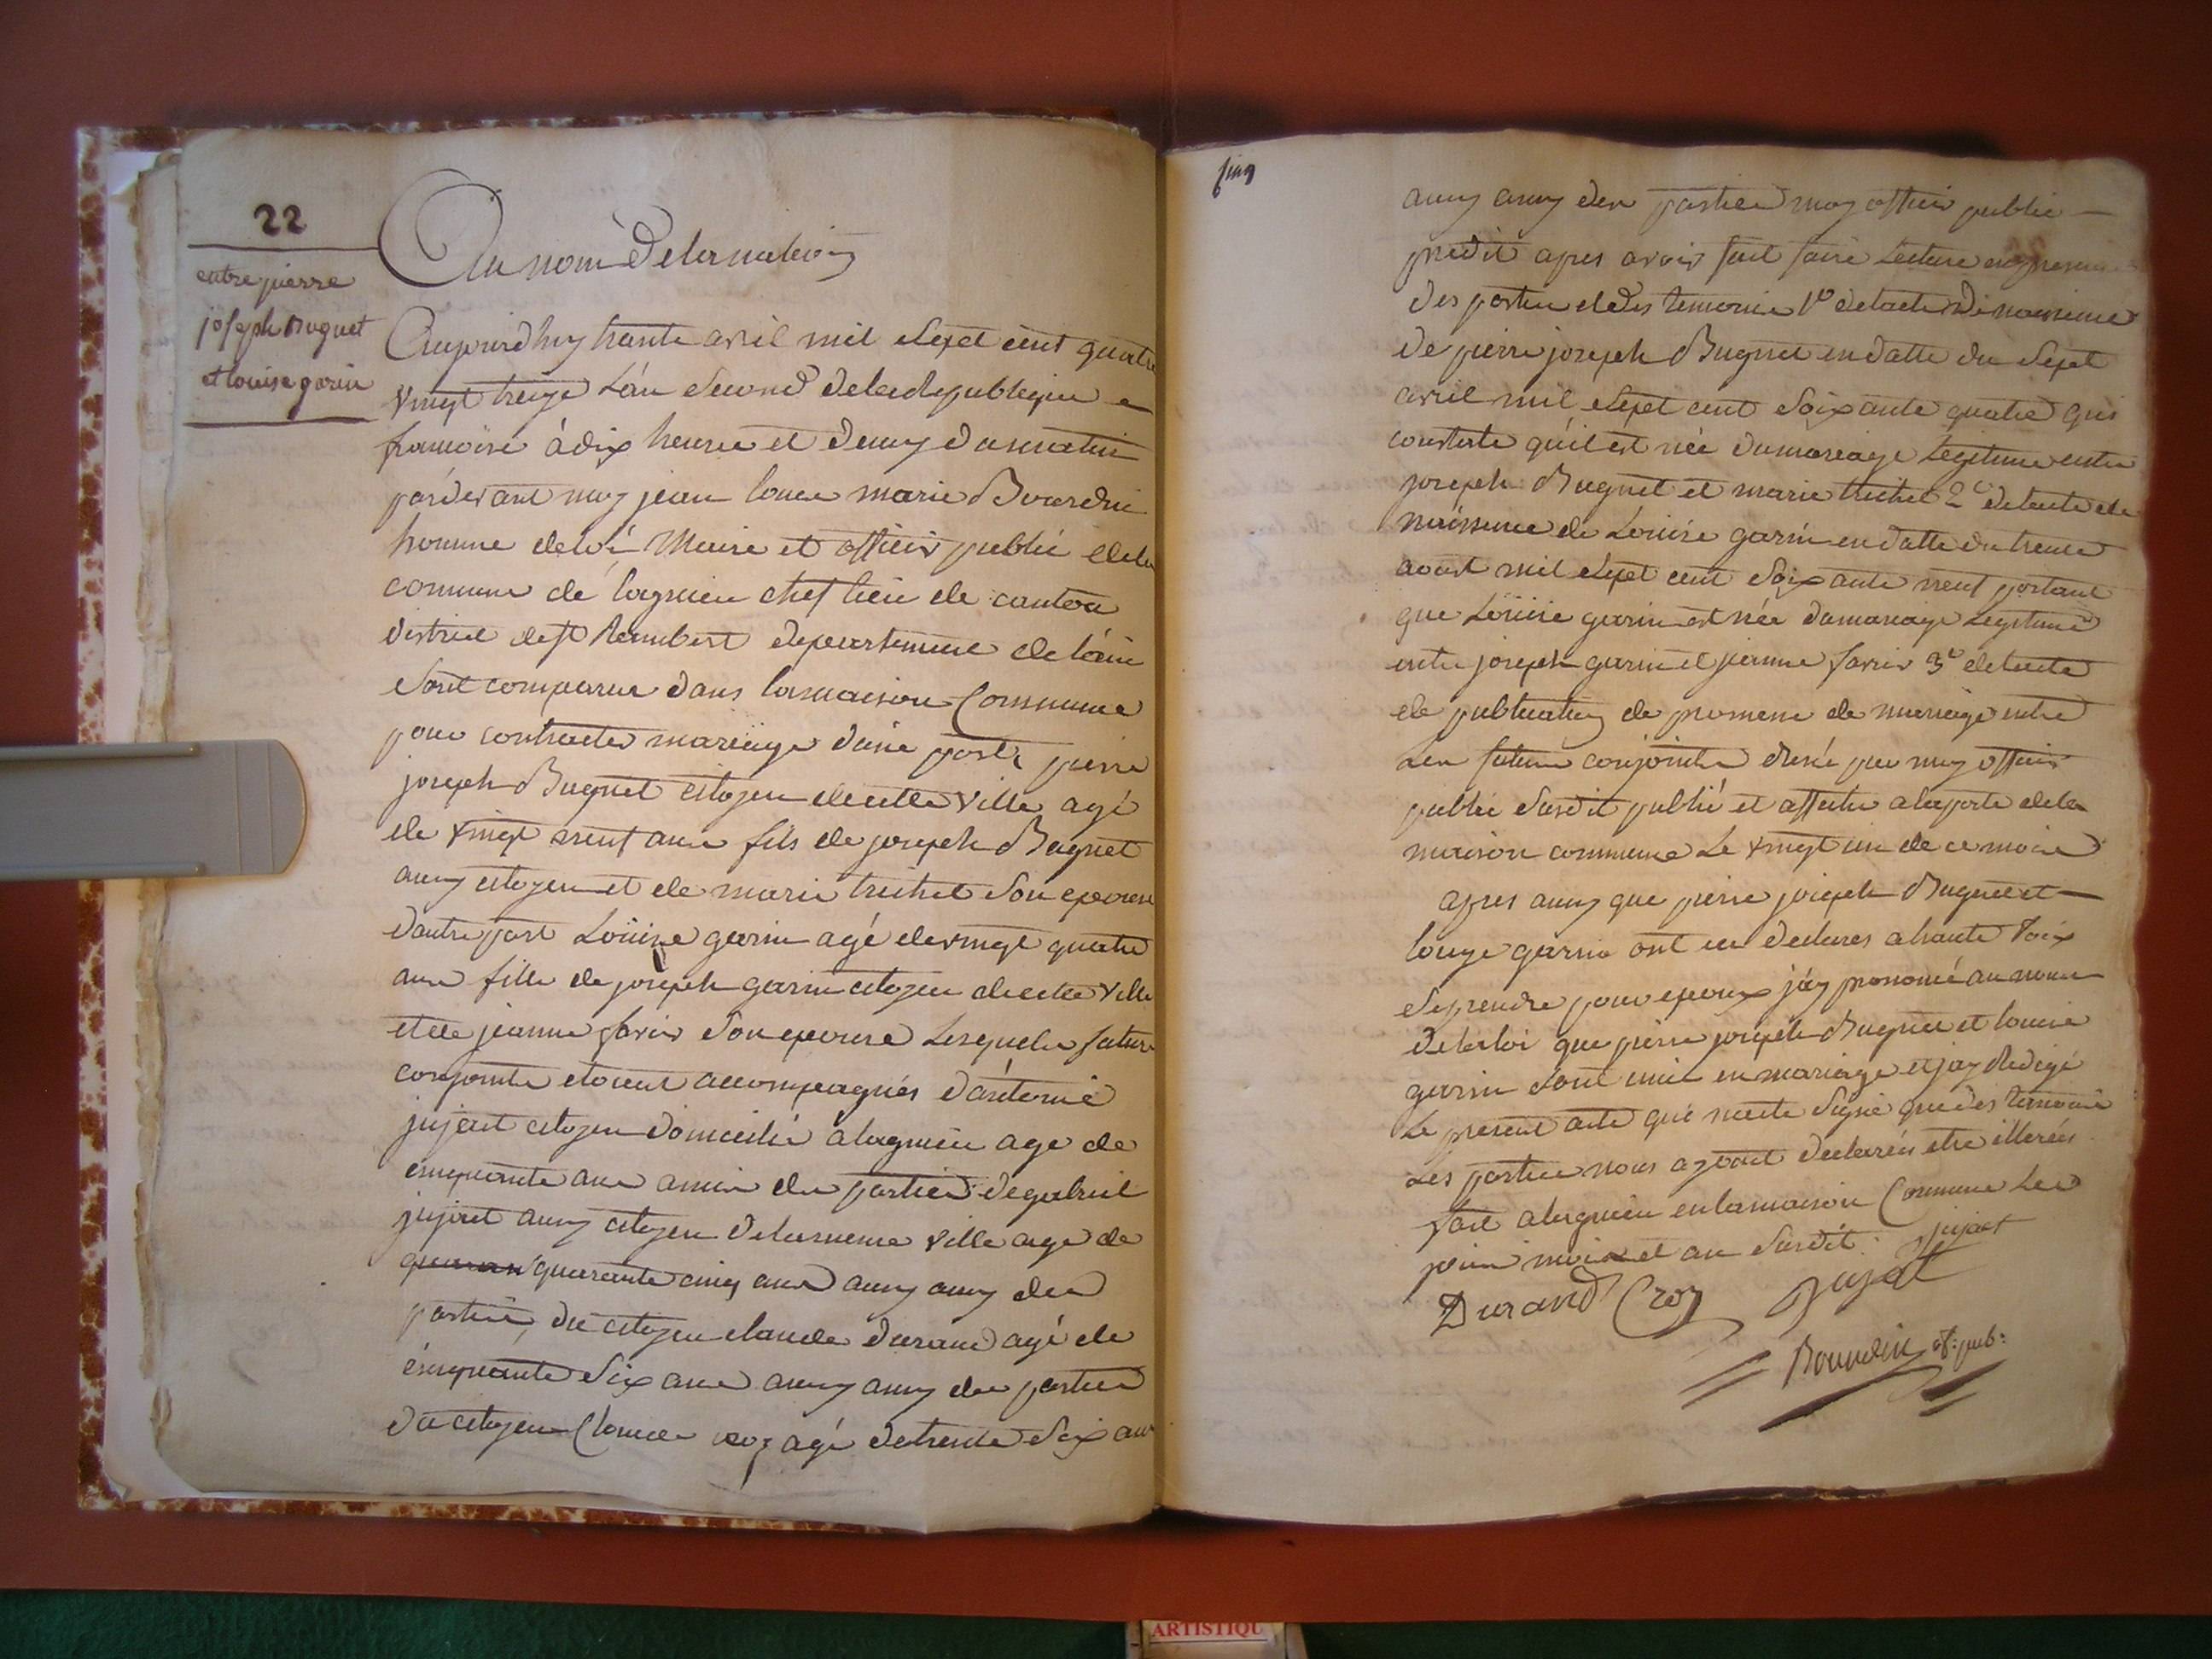 22
entre pierre
joseph Buguet
et louise garin
Au nom de la nation
Aujourdhuy trante avril mil sept cent quatre
vingt treize L'an second de la Republique
francoise à dix heures et demy du matin
pardevant moy jean louis marie Bourdin
homme de loi Maire et officier public de la
commune de lagnieu chef lieu de canton
district de st Rambert departement de l'ain
sont comparus dans la maison Commune
pour contracter mariage d'une part pierre
joseph Buguet citoyen de cette ville agé
de vingt neuf ans fils de joseph Buguet
aussy citoyen et de marie trichet son epouse
dautre part Loüise garin agé de vingt quatre
ans fille de joseph garin citoyen de cette ville
et de jeanne favier son epouse Lesquels futurs
conjoints etoient accompagnés d'antoine
jujat citoyen domicilié a lagnieu age de
cinquante ans amis des parties de gabriel
jujat aussy citoyen de la meme ville age de
quarante cinq ans aussy amy des
parties, du citoyen claude durand agé de
cinquante six ans aussy amy des parties
du citoyen Claude roy agé de trente six ans
aussy amy des parties moy officier public
predit apres avoir fait faire Lecture en presence
des parties et des temoins 1º de l'acte de naissance
de pierre joseph Buguet en datte du sept
avril mil sept cent soixante quatre qui
constate qu'il est née du mariage Legitime entre
joseph Buguet et marie trichet 2º de l'acte de
naissance de Louise garin en datte du trente
aoust mil sept cent soixante neuf portant
que Loüise garin est née du mariage Legitime
entre joseph garin et jeanne favier 3º de l'acte
de publication de promesse de mariage entre
Les futurs conjoints dressé par moy officier
public susdit publié et affiché a la porte de la
maison commune Le vingt un de ce mois
apres aussy que pierre joseph Buguet et
louise garin ont eu declarés a haute voix
se prendre pour epoux j'ay prononcé au nom
de la loi que pierre joseph Buguet et louise
garin sont unis en mariage et j'ay Redigé
Le present acte qui n'a eté signé que des temoins
Les parties nous ayant declarés etre illeterés
fait a lagnieu en la maison Commune Les
jour mois et an susdit. jujat
Durand Croy Jujat
Bourdin of: pub:
ARTISTIQU